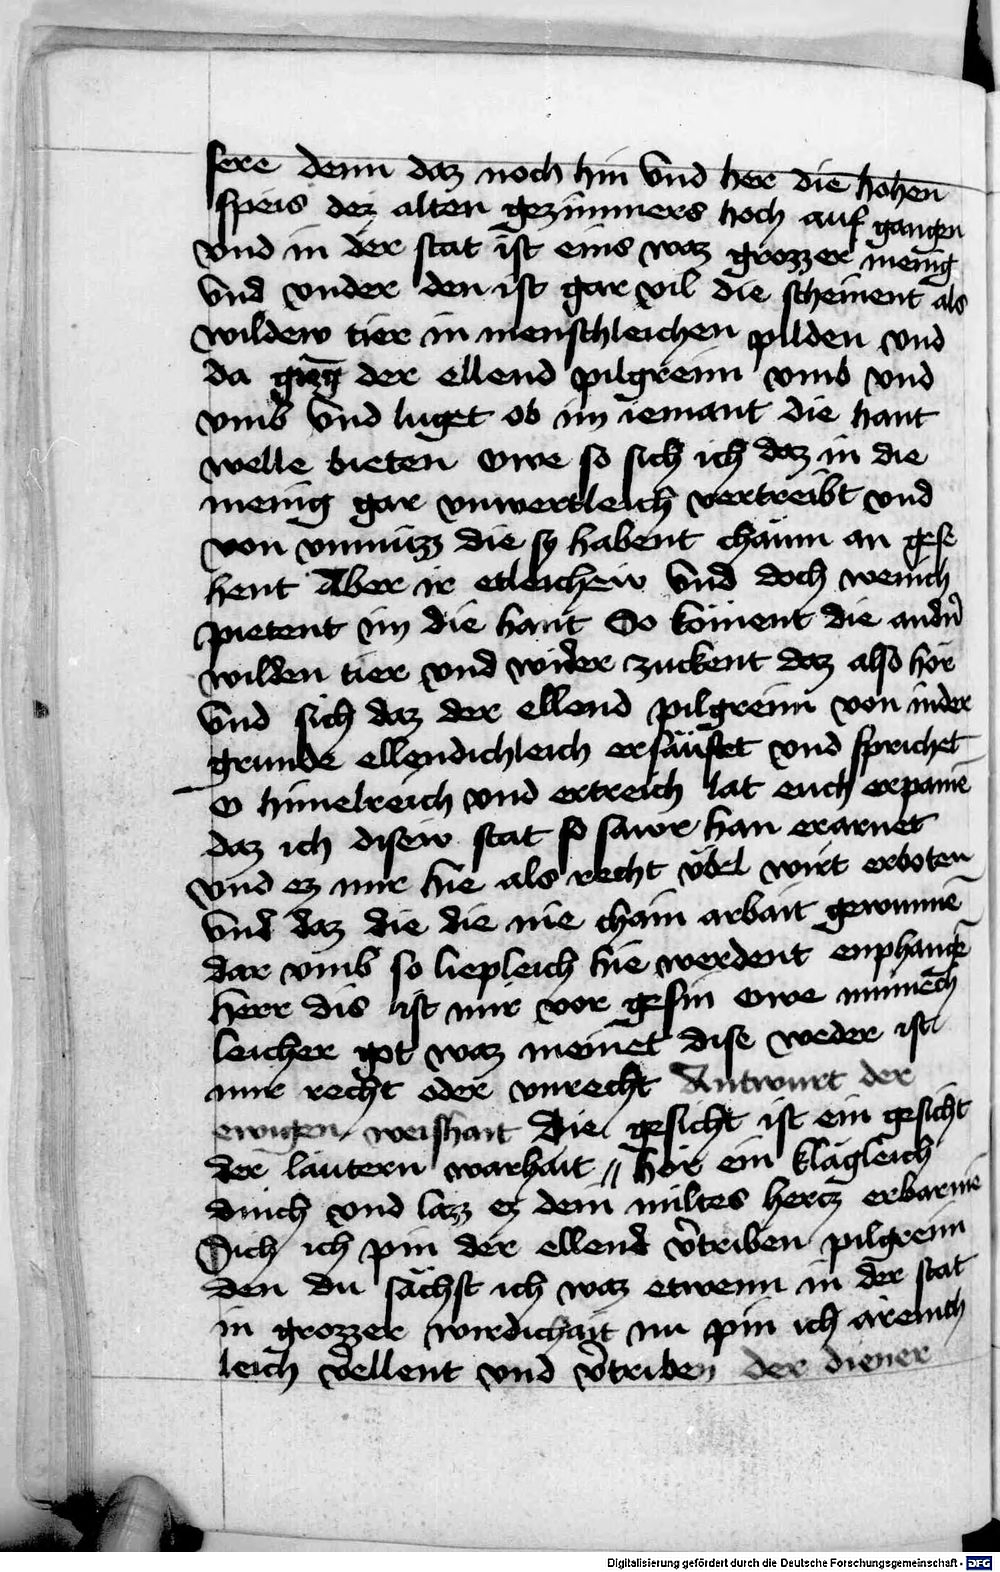 sere denn daz noch hin vnd her die hohen
speis dez alten gezimmers hoch auf gangen
vnd in der stat ist eins waz grozzer menig
vnd vnder den ist gar vil die scheinent als
wildew tier in menschleichen pilden vnd
da ging der ellend pilgreim vmb vnd
vmb vnd luget ob im iemant die hant
welle bieten owe so sich ich daz in die
menig gar vnwertleich vertreibt vnd
von vnmüzz die sy habent chäum an gese
hent Aber ir etleichew vnd doch wenich
pietent im die hant So köment die andn̄
wilden tier vnd wider zuckent daz also hör
vnd sich daz der ellend pilgreim von inder
grunde ellendichleich ersäuftet vnd sprichet
O himelreich vnd ertreich lat euch erparmē
daz ich disew stat so sawr han erarnet
vnd ez mir hie als recht vbel wirt erboten
vnd daz die die nie chain arbait gewunnē
dar vmb so liepleich hie werdent enphangē
herr dis ist mir vor gesin Owe minnech
leicher got waz meinet dise weder ist
mir recht oder vnrecht Antwurt der
ewigen weishait Die gesicht ist ein gesicht
der lautern warhait // hör ein klägleich
dinch vnd lazz ez dein miltes hercz erbarmē
Sich ich pin der ellend v̄triben pilgreim
den du sächst ich waz etwenn in der stat
in grozzer wirdichait nu pin ich ärmch
leich v̄ellent vnd v̄triben der diener
Digitalisierung gefördert durch die Deutsche Forschungsgemeinschaft - DFG